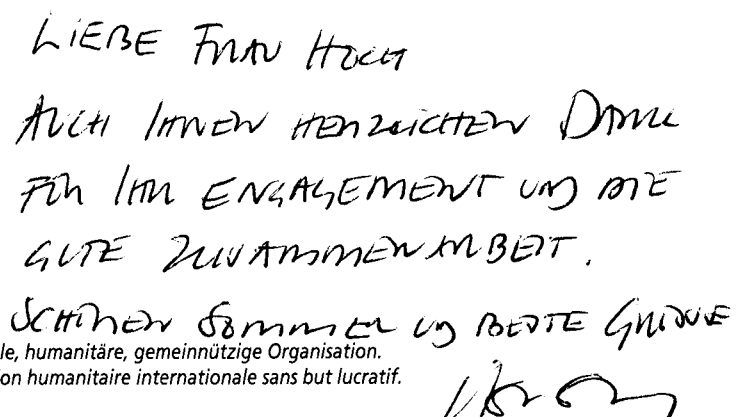 LIEBE FRAU HOCH
AUCH IHNEN HERZLICHEN DANK
FÜR IHR ENGAGEMENT UND DIE
GUTE ZUSAMMENARBEIT.
SCHÖNEN SOMMER UND BESTE GRÜSSE
le, humanitäre, gemeinnützige Organisation.
on humanitaire internationale sans but lucratif.